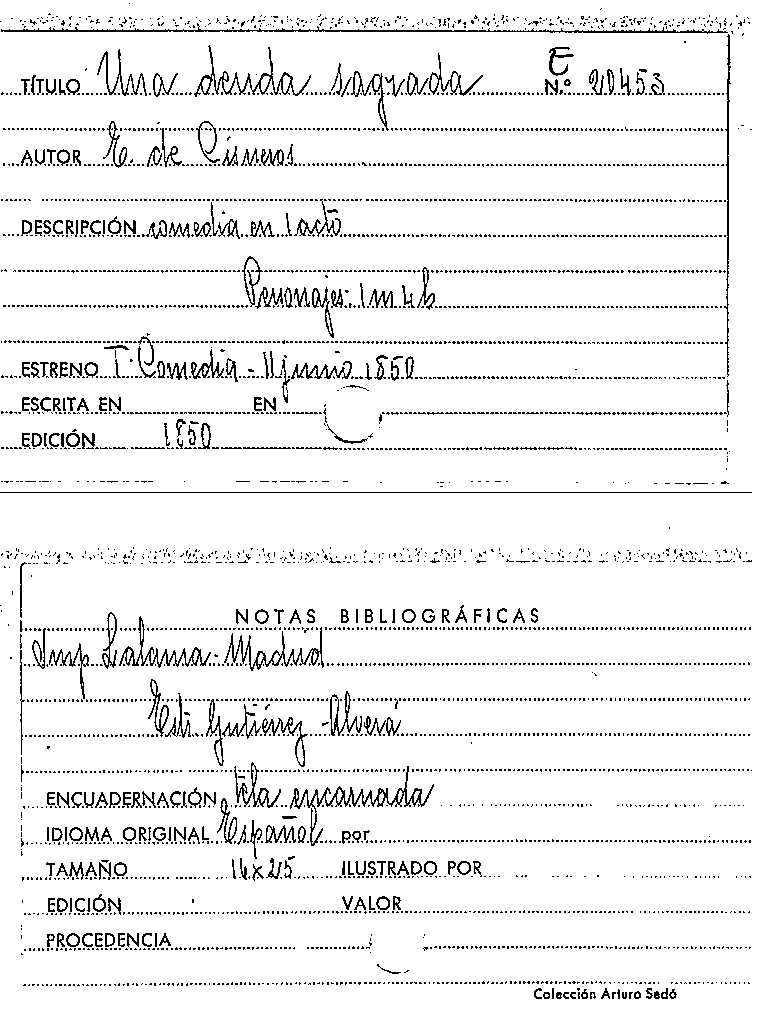 TÍTULO Una deuda sagrada E N.º 20453
AUTOR E. de Cisneros
DESCRIPCIÓN comedia en 1 acto
Personajes: 1 m 4 h
ESTRENO T. Comedia - 11 junio 1850
ESCRITA EN EN
EDICIÓN 1850
NOTAS BIBLIOGRÁFICAS
Imp Lalama - Madrid
Gutiérrez - Alverá
ENCUADERNACIÓN tela encarnada
IDIOMA ORIGINAL Español por
TAMAÑO 16x25 ILUSTRADO POR
EDICIÓN VALOR
PROCEDENCIA
Colección Arturo Sedó